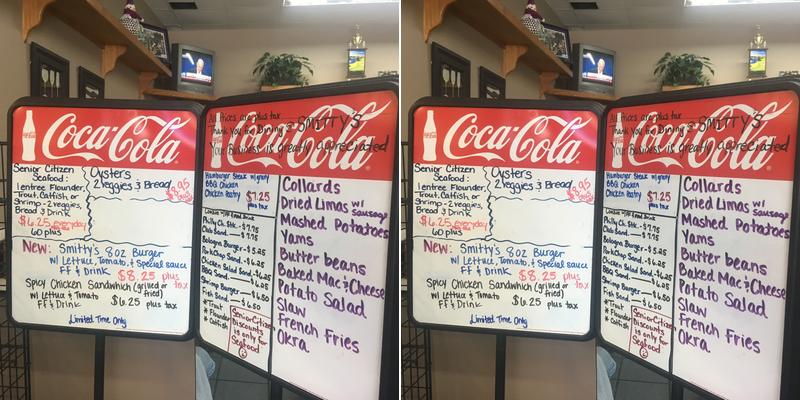 Coca-Cola
Senior Citizen
Seafood:
1 entree Flounder,
Trout, Catfish or
Shrimp - 2 veggies,
Bread & Drink
$6.25 everyday
60 plus
Oysters
2 veggies & Bread
New: Smitty's 8oz Burger
w/ Lettuce, Tomato, & Special sauce
FF & Drink $8.25 plus tax
Spicy Chicken Sandwhich (grilled or fried)
w/ Lettuce & Tomato
FF & Drink $6.25 plus tax
Limited Time Only
All prices are plus tax
Thank you for Dining @ SMITTY'S
Your Business is greatly appreciated
Coca-Cola
Hamburger Steak w/ gravy
BBQ Chicken
Chicken Pastry
$7.25
plus tax
Philly Ch. Stk. - $7.75
Club - $7.75
Bologna Burger - $5.25
PorkChop Sand - $6.25
Chicken Salad Sand - $6.25
BBQ Sand - $6.25
Shrimp Burger - $6.50
Fish Sand - $6.50
* Trout
* Flounder
* Catfish
Senior Citizen
Discounts
is only for
Seafood
Collards
Dried Limas w/ Sausage
Mashed Potatoes
Yams
Butter beans
Baked Mac & Cheese
Potato Salad
Slaw
French Fries
Okra
Coca-Cola
Senior Citizen
Seafood:
1 entree Flounder,
Trout, Catfish or
Shrimp - 2 veggies,
Bread & Drink
$6.25 everyday
60 plus
Oysters
2 veggies & Bread
New: Smitty's 8oz Burger
w/ Lettuce, Tomato, & Special sauce
FF & Drink $8.25 plus tax
Spicy Chicken Sandwhich (grilled or fried)
w/ Lettuce & Tomato
FF & Drink $6.25 plus tax
Limited Time Only
All prices are plus tax
Thank you for Dining @ SMITTY'S
Your Business is greatly appreciated
Coca-Cola
Hamburger Steak w/ gravy
BBQ Chicken
Chicken Pastry
$7.25
plus tax
Philly Ch. Stk. - $7.75
Club - $7.75
Bologna Burger - $5.25
PorkChop Sand - $6.25
Chicken Salad Sand - $6.25
BBQ Sand - $6.25
Shrimp Burger - $6.50
Fish Sand - $6.50
* Trout
* Flounder
* Catfish
Senior Citizen
Discounts
is only for
Seafood
Collards
Dried Limas w/ Sausage
Mashed Potatoes
Yams
Butter beans
Baked Mac & Cheese
Potato Salad
Slaw
French Fries
Okra